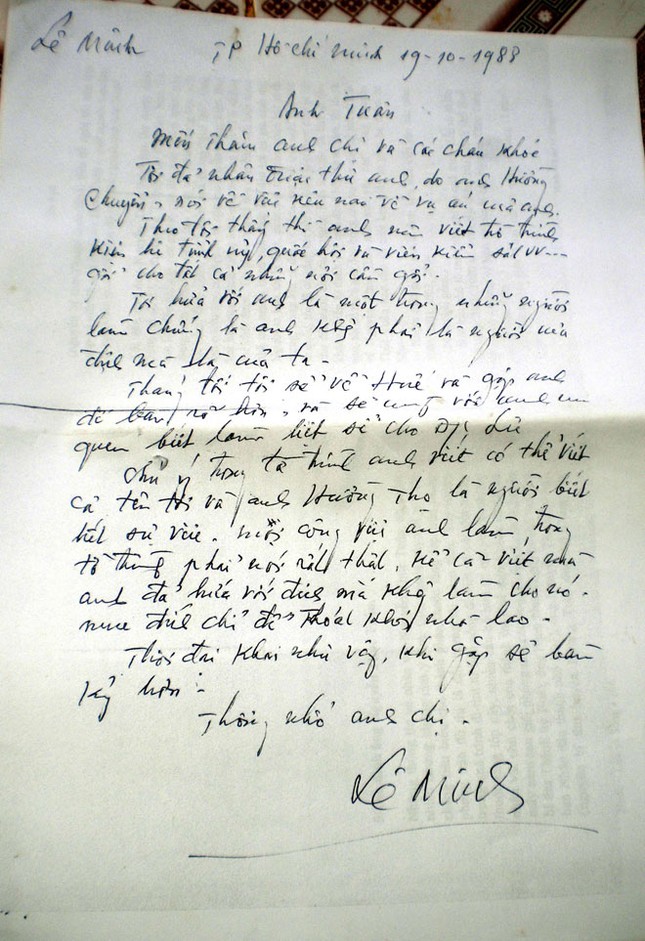 Lê Minh TP Hồ Chí Minh 19-10-1988
Anh Tuân
Mến thăm anh chị và các cháu khoẻ
Tôi đã nhận được thư anh, do anh Hường
chuyển, nói về việc nên nào về vụ án của anh.
Theo tôi thấy thì anh nên viết tờ trình
kiến Bí tỉnh uỷ, quốc hội và viện kiểm sát vv...
gởi cho tất cả những nơi cần gởi.
Tôi hứa với anh là một trong những người
làm chứng là anh không phải là người của
địch mà là của ta.
Tháng tới tôi sẽ về Huế và gặp anh
để bàn rõ hơn, và sẽ cùng với anh em
quen biết làm liệt sĩ cho
Chú ý trong tờ trình anh viết có thể viết
cả tên tôi và anh Hường Thọ là người biết
hết sự việc. Mọi công việc anh làm, trong
tờ trình phải nói rất thật, kể cả việc mà
anh đã hứa với địch mà không làm cho nó.
mưu địch chỉ để thoát khỏi nhà lao.
Thôi đại khái như vậy, khi gặp sẽ bàn
kỹ hơn.
Thông nhớ anh chị.
Lê Minh